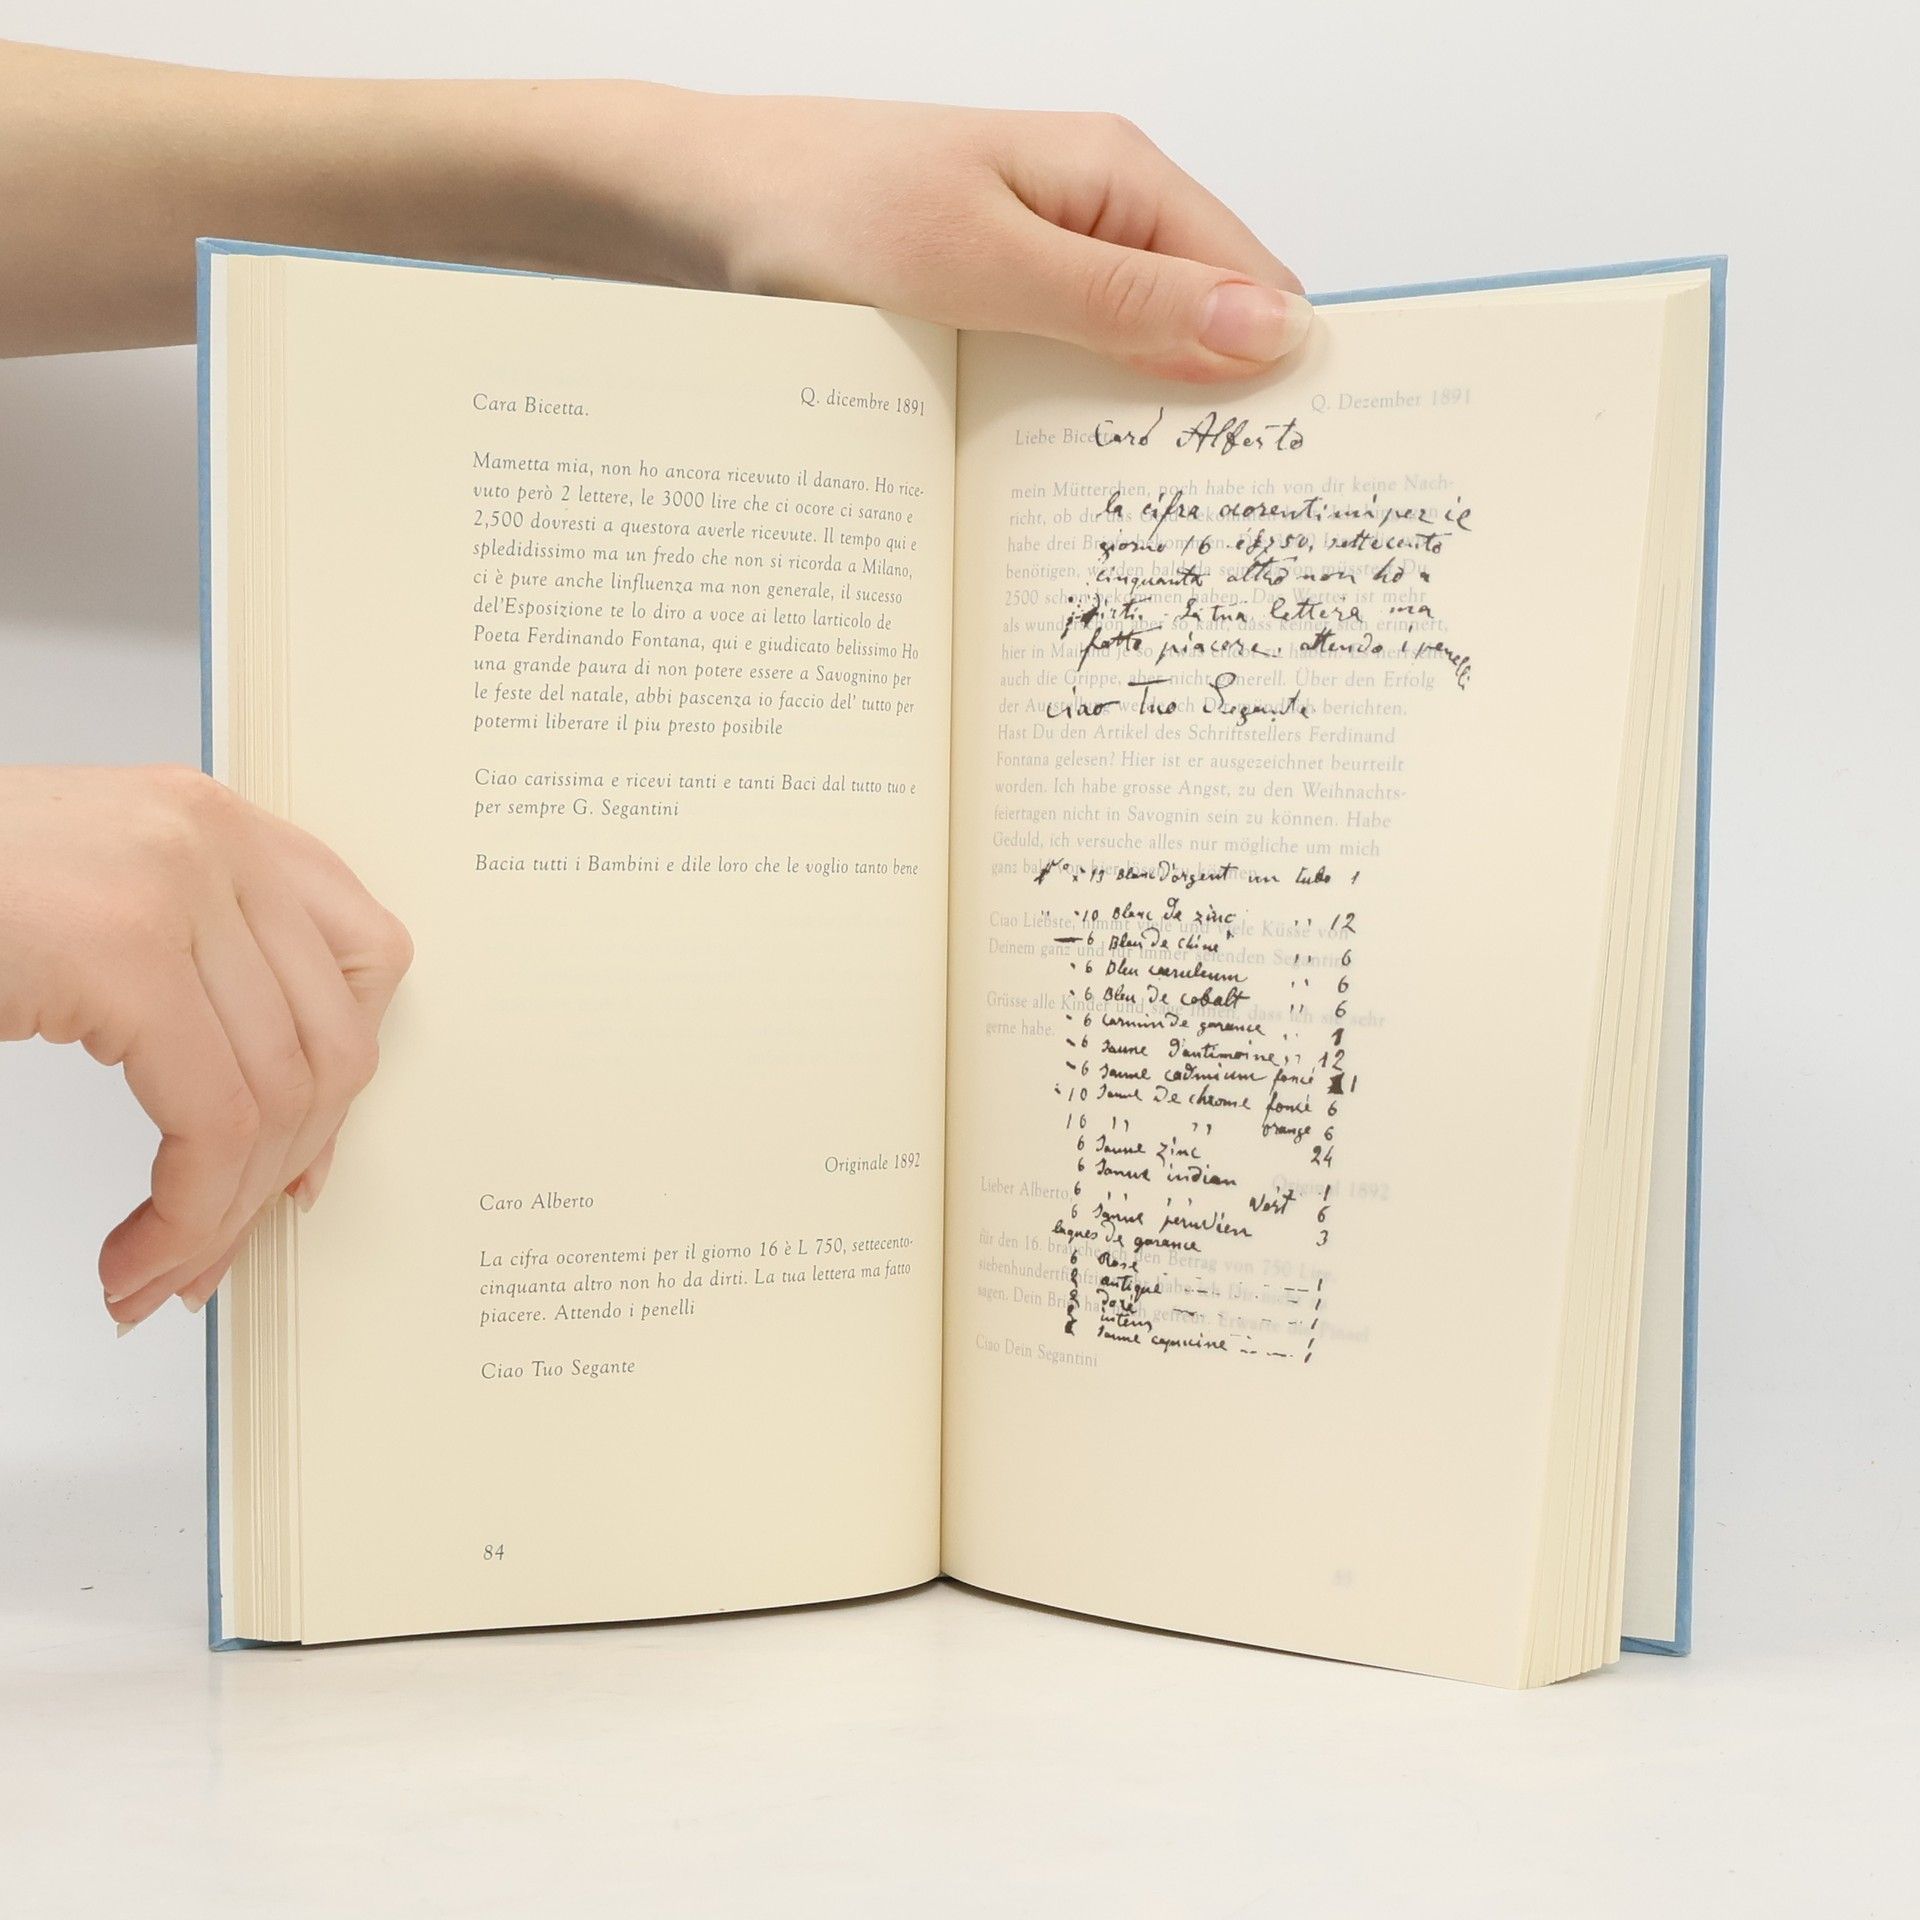 Q. dicembre 1891
Cara Bicetta.
Mametta mia, non ho ancora ricevuto il danaro. Ho rice-
vuto però 2 lettere, le 3000 lire che ci ocore ci sarano e
2,500 dovresti a questora averle ricevute. Il tempo qui e
spledidissimo ma un fredo che non si ricorda a Milano,
ci è pure anche linfluenza ma non generale, il sucesso
del'Esposizione te lo diro a voce ai letto larticolo de
Poeta Ferdinando Fontana, qui e giudicato belissimo Ho
una grande paura di non potere essere a Savognino per
le feste del natale, abbi pascenza io faccio del' tutto per
potermi liberare il piu presto posibile
Ciao carissima e ricevi tanti e tanti Baci dal tutto tuo e
per sempre G. Segantini
Bacia tutti i Bambini e dile loro che le voglio tanto bene
Originale 1892
Caro Alberto
La cifra ocorentemi per il giorno 16 è L 750, settecento-
cinquanta altro non ho da dirti. La tua lettera ma fatto
piacere. Attendo i penelli
Ciao Tuo Segante
84
Caro Alberto
la cifra ocorentimi per il
giorno 16 è £750, settecento
cinquanta altro non ho a
dirti. La tua lettera ma
fatto piacere. attendo i penelli
ciao Tuo Segante
13 Blanc d'argent un tubo 1
10 Blanc de zinc " 12
6 Bleu de chine " 6
6 Bleu caeruleum " 6
6 Bleu de cobalt " 6
6 Carmin de garance " 1
6 Jaune d'antimoine " 12
6 Jaune cadmium foncé 1
10 Jaune de chrome foncé 6
10 " " orange 6
6 Jaune zinc 24
6 Jaune indien 1
6 " " Vert 6
6 Jaune peruvien 3
laques de garance
6 Rose 1
antique 1
doré 1
intens 1
Jaune capucine 1
Q. Dezember 1891
Liebe Bicetta
mein Mütterchen, noch habe ich von dir keine Nach-
richt, ob du das Geld bekommen
habe drei Briefe bekommen.
benötigen, werden bald da sein, davon müsstest Du
2500 schon bekommen haben. Das Wetter ist mehr
als wunderschön aber so kalt, dass keiner sich erinnert,
hier in Mailand je so etwas erlebt zu haben.
auch die Grippe, aber nicht generell. Über den Erfolg
der Ausstellung werde ich Dir mündlich berichten.
Hast Du den Artikel des Schriftstellers Ferdinand
Fontana gelesen? Hier ist er ausgezeichnet beurteilt
worden. Ich habe grosse Angst, zu den Weihnachts-
feiertagen nicht in Savognin sein zu können. Habe
Geduld, ich versuche alles nur mögliche um mich
ganz bald von hier lösen zu können.
Ciao Liebste, nimmt viele und viele Küsse von
Deinem ganz und für immer seienden Segantini
Grüsse alle Kinder und sage ihnen, dass ich sie sehr
gerne habe.
Original 1892
Lieber Alberto,
für den 16. brauche ich den Betrag von 750 Lire,
siebenhundertfünfzig habe ich Dir nicht
sagen. Dein Brief hat mich gefreut. Erwarte die Pinsel
Ciao Dein Segantini